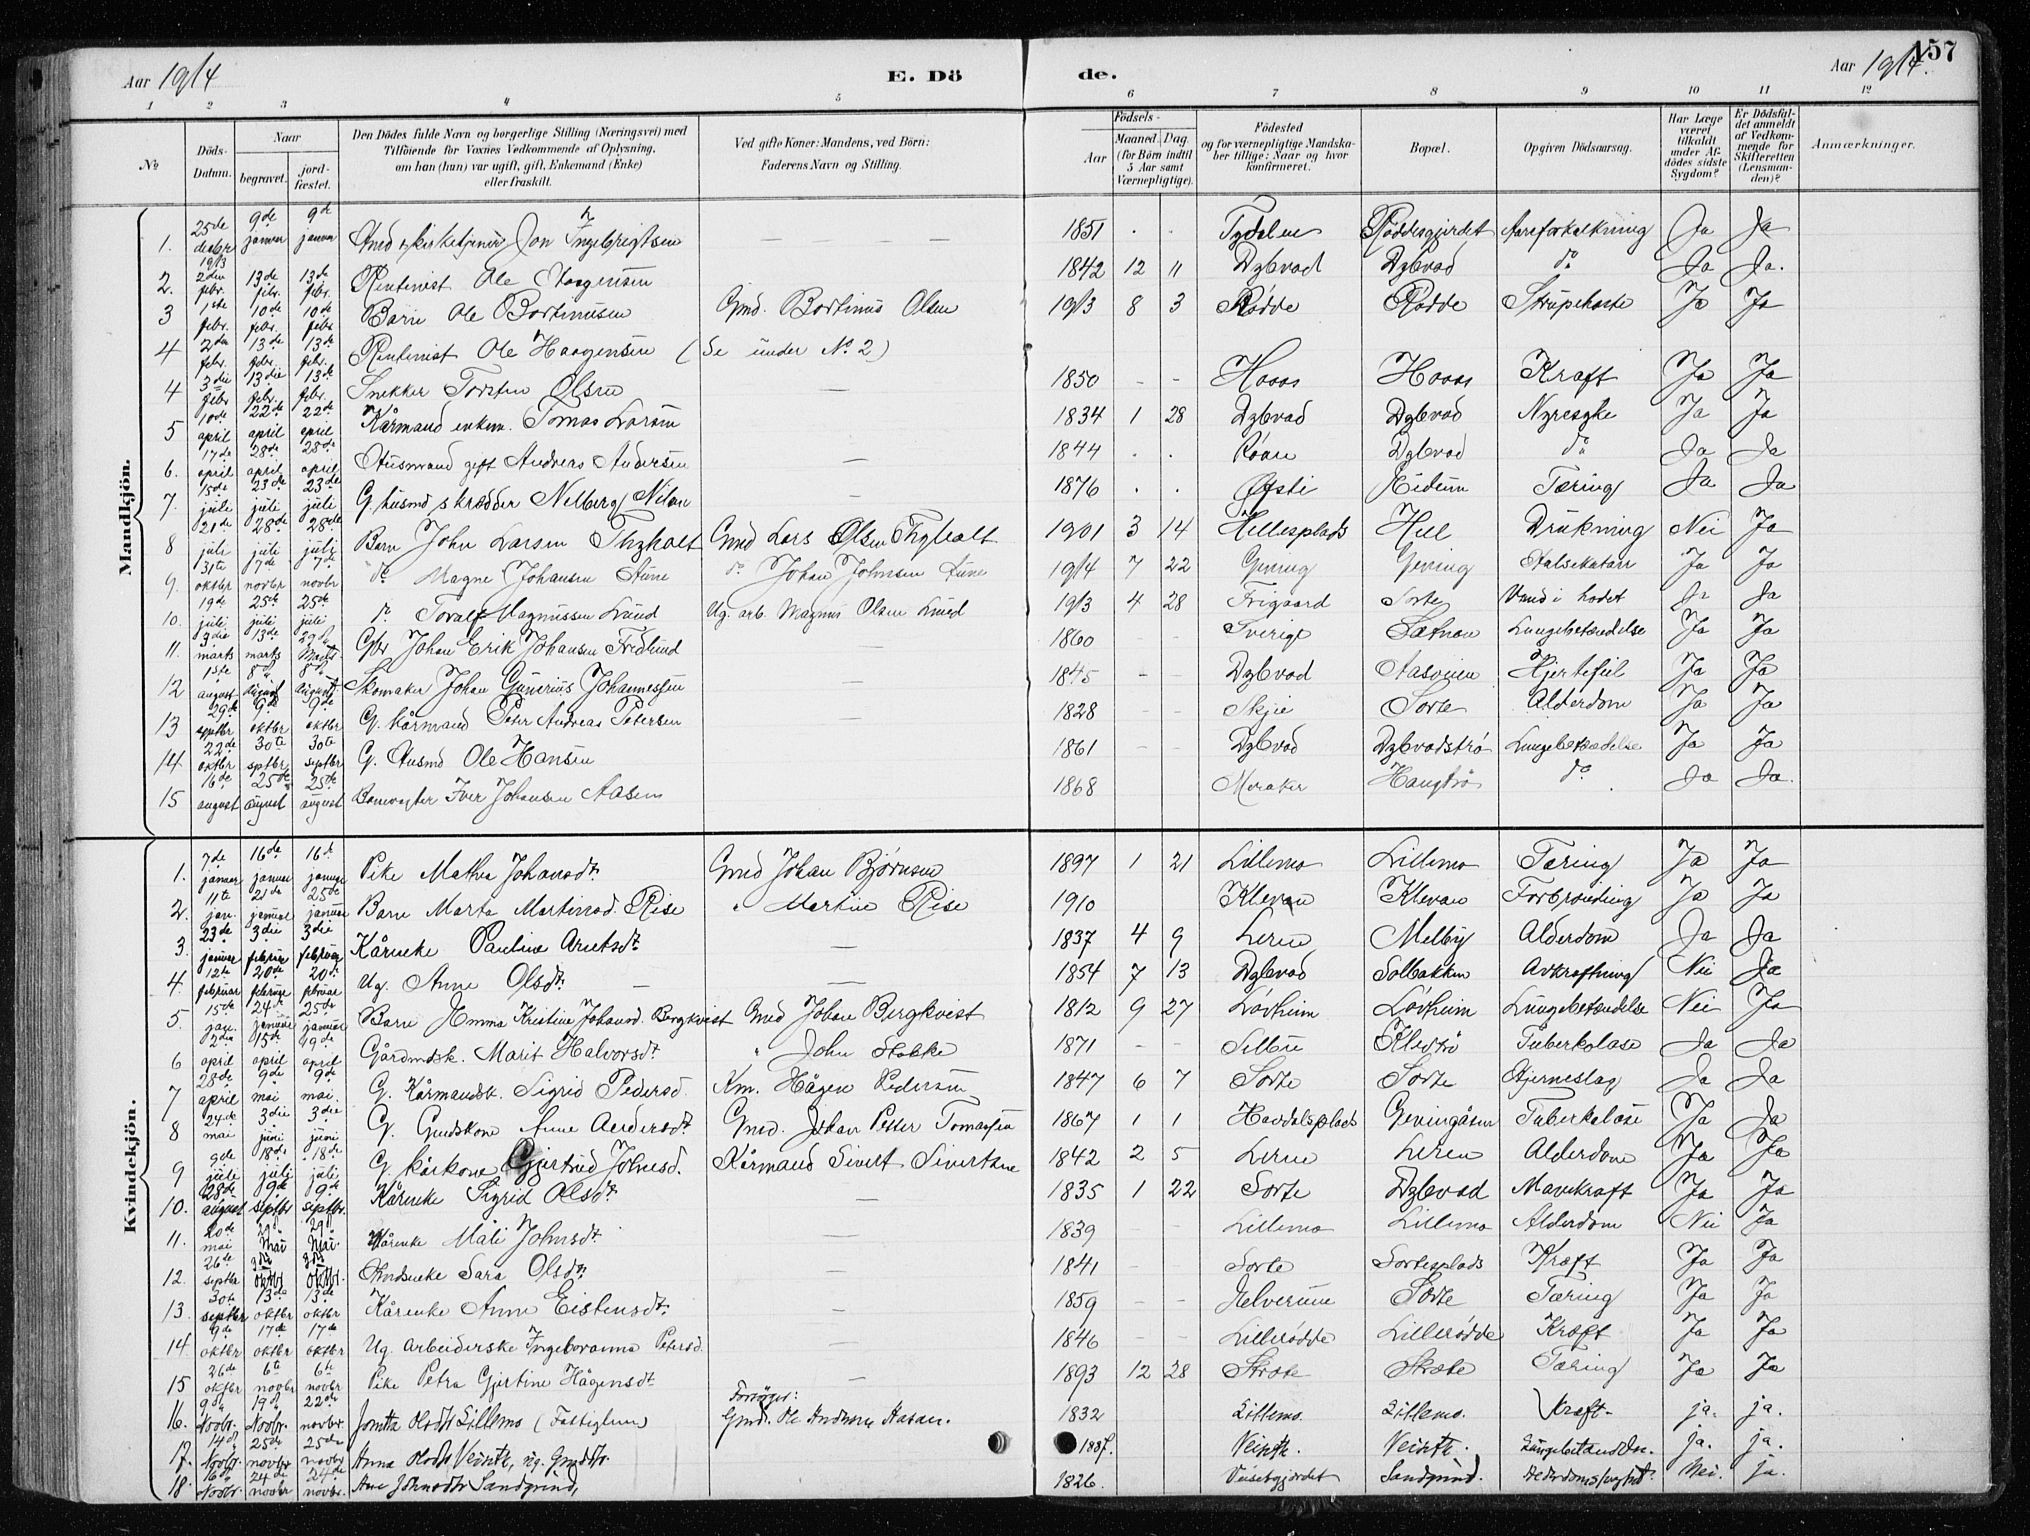 Aar 1914 E. Dö de. Aar 1914. 157
1 2 3 4 5 6 7 8 9 10 11 12
No Döds-Datum. Naar begravet. jord-fæstet. Den Dödes fulde Navn og borgerlige Stilling (Næringsvei) med Tilföiende for Voxnes Vedkommende af Oplysning, om han (hun) var ugift, gift, Enkemand (Enke) eller fraskilt. Ved gifte Koner: Mandens, ved Börn: Faderens Navn og Stilling. Födsels- Aar Maaned. Dag. (for Börn indtil 5 Aar samt Værnepligtige). Födested og for værnepligtige Mandskaber tillige: Naar og hvor konfirmeret. Bopæl. Opgiven Dödsaarsag. Har Læge været tilkaldt under Afdödes sidste Sygdom? Er Dödsfaldet anmeldt af Vedkommende for Skifteretten (Lensmanden)? Anmærkninger.
Mandkjön.
1. 25de desbr 1913 9de januar 9de januar Gmd og kirketjener Jon Ingebrigtsen — 1851 . . Tydalen Röddesgjerdet Aareforkalkning Ja Ja
2. 2den febr. 13de febr. 13de febr. Rentenist Ole Haagensen 1842 12 11 Dybvad Dybvad do Ja Ja.
3 1ste febr. 10de febr. 10de febr Barn Ole Bortinusen Gmd. Bortinus Olsen 1913 8 3 Rødde Rødde Strupehoste Ja Ja
4 2den febr. 13de febr. 13de febr. Rentenist Ole Haagensen (Se under No. 2)
4 3die febr 13die febr. 13de febr. Snekker Torsten Olsen — 1850 - - Hooas Hooas Kræft Ja Ja
5 10de april 22de april 22de april Kårmand enkem. Tomas Larsen 1834 1 28 Dybvad Dybvad Nyresyke Ja Ja
6. 17de april 28de april 28de april Husmand gift Andreas Andersen — 1844 . . Roan Dybvad do Ja Ja
7. 15de juli 23de juli 23de juli G. husmd skrædder Nelberg Nilsen — 1876 . . Øfsti Hideum Tæring Ja Ja
8 21de juli 28de juli 28de juli Barn John Larsen Thyholt Gmd Lars Olsen Thyholt 1901 3 14 Hellesplads Hell Drukning Nei Ja
9. 31te oktbr 7de novbr 7de novbr do Magne Johansen Aune do Johan Johnsen Aune 1914 7 22 Geving Geving Halsekatarr Ja Ja
10. 19de juli 25de juli 25de juli do Toralf Magnussen Lund Ug. arb. Magnus Olsen Lund 1913 4 28 Frigaard Sorte Vand i hodet Ja Ja
11. 3die marts 13de marts 29de Marts Gbr Johan Erik Johansen Fredlund — 1860 - - Sverige Sætnan Lungebetændelse Ja Ja
12 1ste august 8de august 8de august Skomaker Johan Gunerius Johannessen — 1845 - - Dybvad Aasvuen Hjertefeil Ja Ja
13 29de septbr 9de oktbr 9de oktbr G. kårmand Peter Andreas Petersen — 1828 - - Skjei Sorte Alderdom Ja Ja
14. 22de oktbr 30te septbr 30te septbr G. Husmd Ole Hansen 1861 - - Dybvad Dybvadstrø Lungebetændelse Ja Ja
15 16de august 25de august 25de august Banevogter Iver Johansen Aasen 1868 Meraker Haugtrø do Ja Ja.
Kvindekjön.
1. 7de januar 16de januar 16de januar Pike Mathea Johansdt. Gmd Johan Bjørnsen 1897 1 21 Lillemo Lillemo Tæring Ja Ja
2. 11te jan. 21de januar 25de januar Barn Marta Martinsd. Rise " Martin Rise 1910 Klevan Klevan Forbrænding Ja Ja
3. 23de januar 3die februar 3die februar Kårenke Pauline Arntsdt. — 1837 4 9 Leren Melby Alderdom Ja Ja
4. 12te februar 20de februar 20de februar Ug. Anne Olsdt. — — 1854 7 13 Dybvad Solbakken Avkræftning Nei Ja
5. 15de jan. 24de januar 25de januar Barn Hemma Kristine Johansd. Bergkvist Gmd Johan Bergkvist 1812 9 27 Løvheim Løvheim Lungebetændelse Nei Ja
6 2den april 15de april 19de april Gårdmdsk. Marit Halvorsdt. " John Stokke 1871 - - Selbu Klestrø Tuberkolose Ja Ja
7 28de april 9de mai 9de mai. G. Kårmandsk. Sigrid Pedersd. Km. Hågen Pedersen 1847 6 7 Sorte Sorte Hjerneslag Ja Ja
8 24de mai 3die juni 3die juni G. Gmdskone Anne Andersdt. Gmd. Johan Petter Tomassen 1867 1 1 Havdalsplads Gevingåsen Tuberkolose Ja Ja
9 9de juli 18de juli 18de juli G. kårkone Gjertrud Johnsd. Kårmand Sivert Sivertsen 1842 2 5 Leren Leren Alderdom Ja Ja
10. 28de august 9de septbr 9de septbr. Kårenke Sigrid Olsdt. — 1835 1 22 Sorte Dybvad Mavekræft Ja Ja
11. 20de mai 29 Mai 29 Mai. Kårenke Mali Johnsdt. — 1839 - - Lillemo Lillemo Alderdom Nei Ja
12. 26de septbr 3die oktbr 3die oktbr. Gmdsenke Sara Olsdt. — 1841 - - Sorte Sortesplads Kræft Ja Ja
13. 30te septbr 13de oktbr 13de oktbr Kårenke Anne Eistensdt. — 1859 - - Helverum Sorte Tæring Ja Ja
14. 9de oktbr 17de oktbr 17de oktbr Ug. Arbeiderske Ingeboranna Petersd. — 1846 - - Lillerødde Lillerødde Kræft Ja Ja
15 26de oktbr 6te novbr 6te novbr Pike Petra Gjertine Hågensdt. — 1893 12 28 Skræe Skræe Tæring Ja Ja
16. 9de Novbr. 19de Novbr. 22de novbr. Jonetta Olsdtr Lillemo (Fattiglem) Forsörger: Gmd. Ole Andreas Aasan. 1832 Lillemo. Lillemo. Kræft. ja. ja.
17. 14de Novbr. 25de novbr 25de novbr Anna Olsdtr Veiseth, ug. Gmdsdtr. 1887. Veiseth. Veiseth. Lungebetændelse. ja. ja.
18. 16de Novbr. 24de novbr. 24de novbr. Ane Johnsdtr Sandgrind, 1826. Veisetgjerdet Sandgrind. Alderdomssvaghed. Nei. ja.